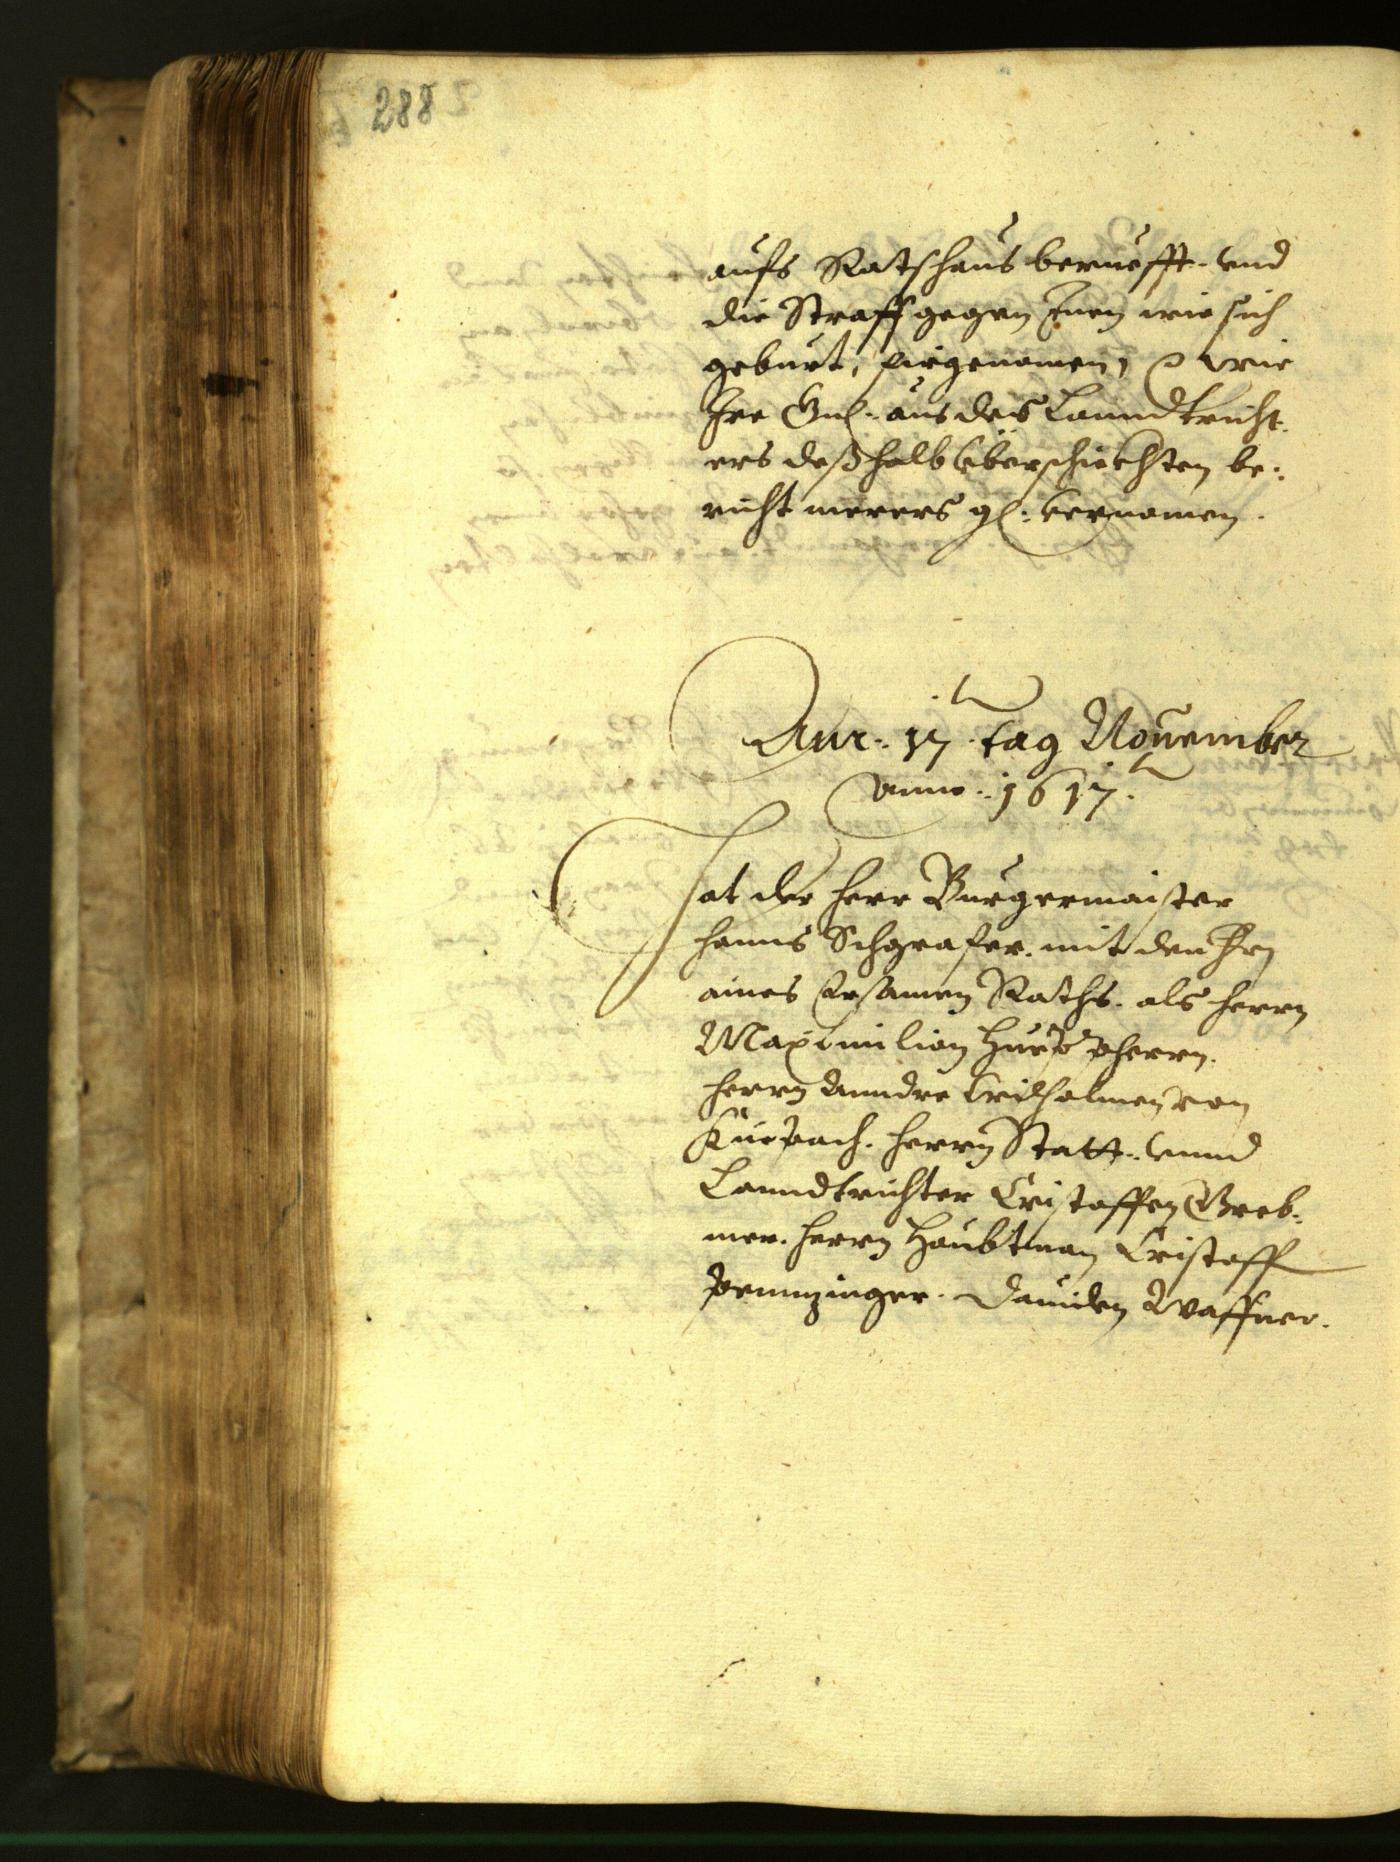 288
aufs Ratschaus beruefft. vnd
die Straff gegen Inen wie sich
geburt, firgenomen, wie
Ire Gnl: aus des Lanndtricht
ers deßhalb überschickhten be:
richt merers gl: vernomen.
Den: 17 tag Nouember
anno: 1617.
Hat der herr Burgermaister
hanns Schgrafer. mit den Hrn
aines Ersamen Raths. als herrn
Maximilian
herrn Anndre Wilhalmen von
Küepach. herrn Statt: vnnd
Lanndtrichter Cristoffen Greb:
mer. herrn Haubtman Cristoff
Prunzinger. Dauiden Waffner.